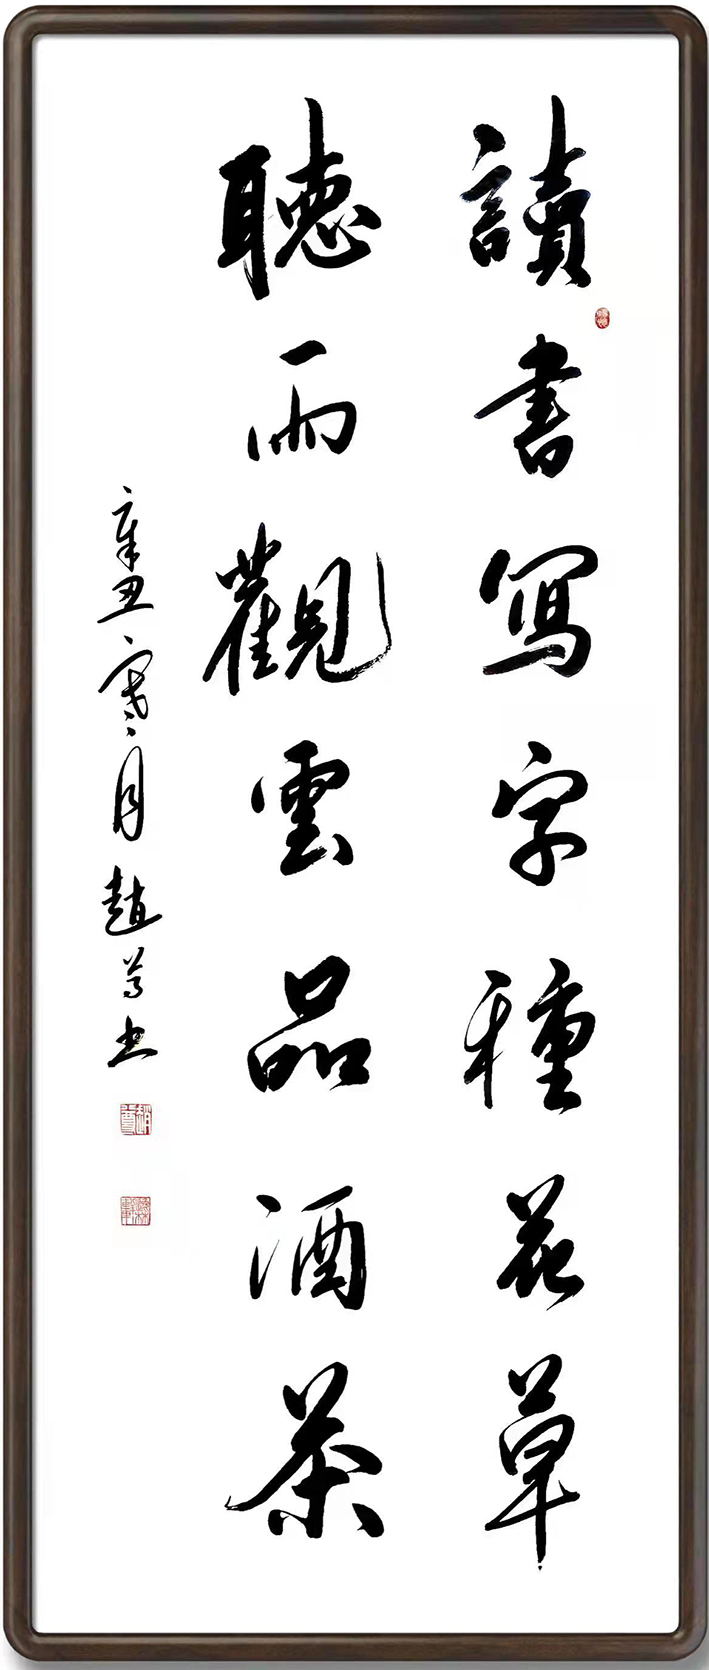 讀書寫字種花草
聽雨觀雲品酒茶
辛丑寒月趙書